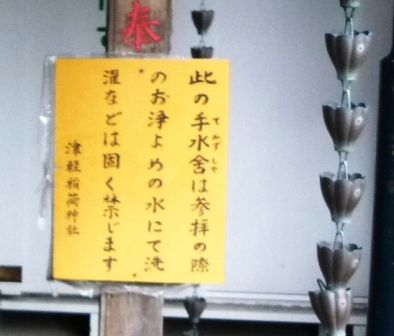 奉
此の手水舎は参拝の際
のお浄よめの水にて洗
濯などは固く禁じます
津軽稲荷神社